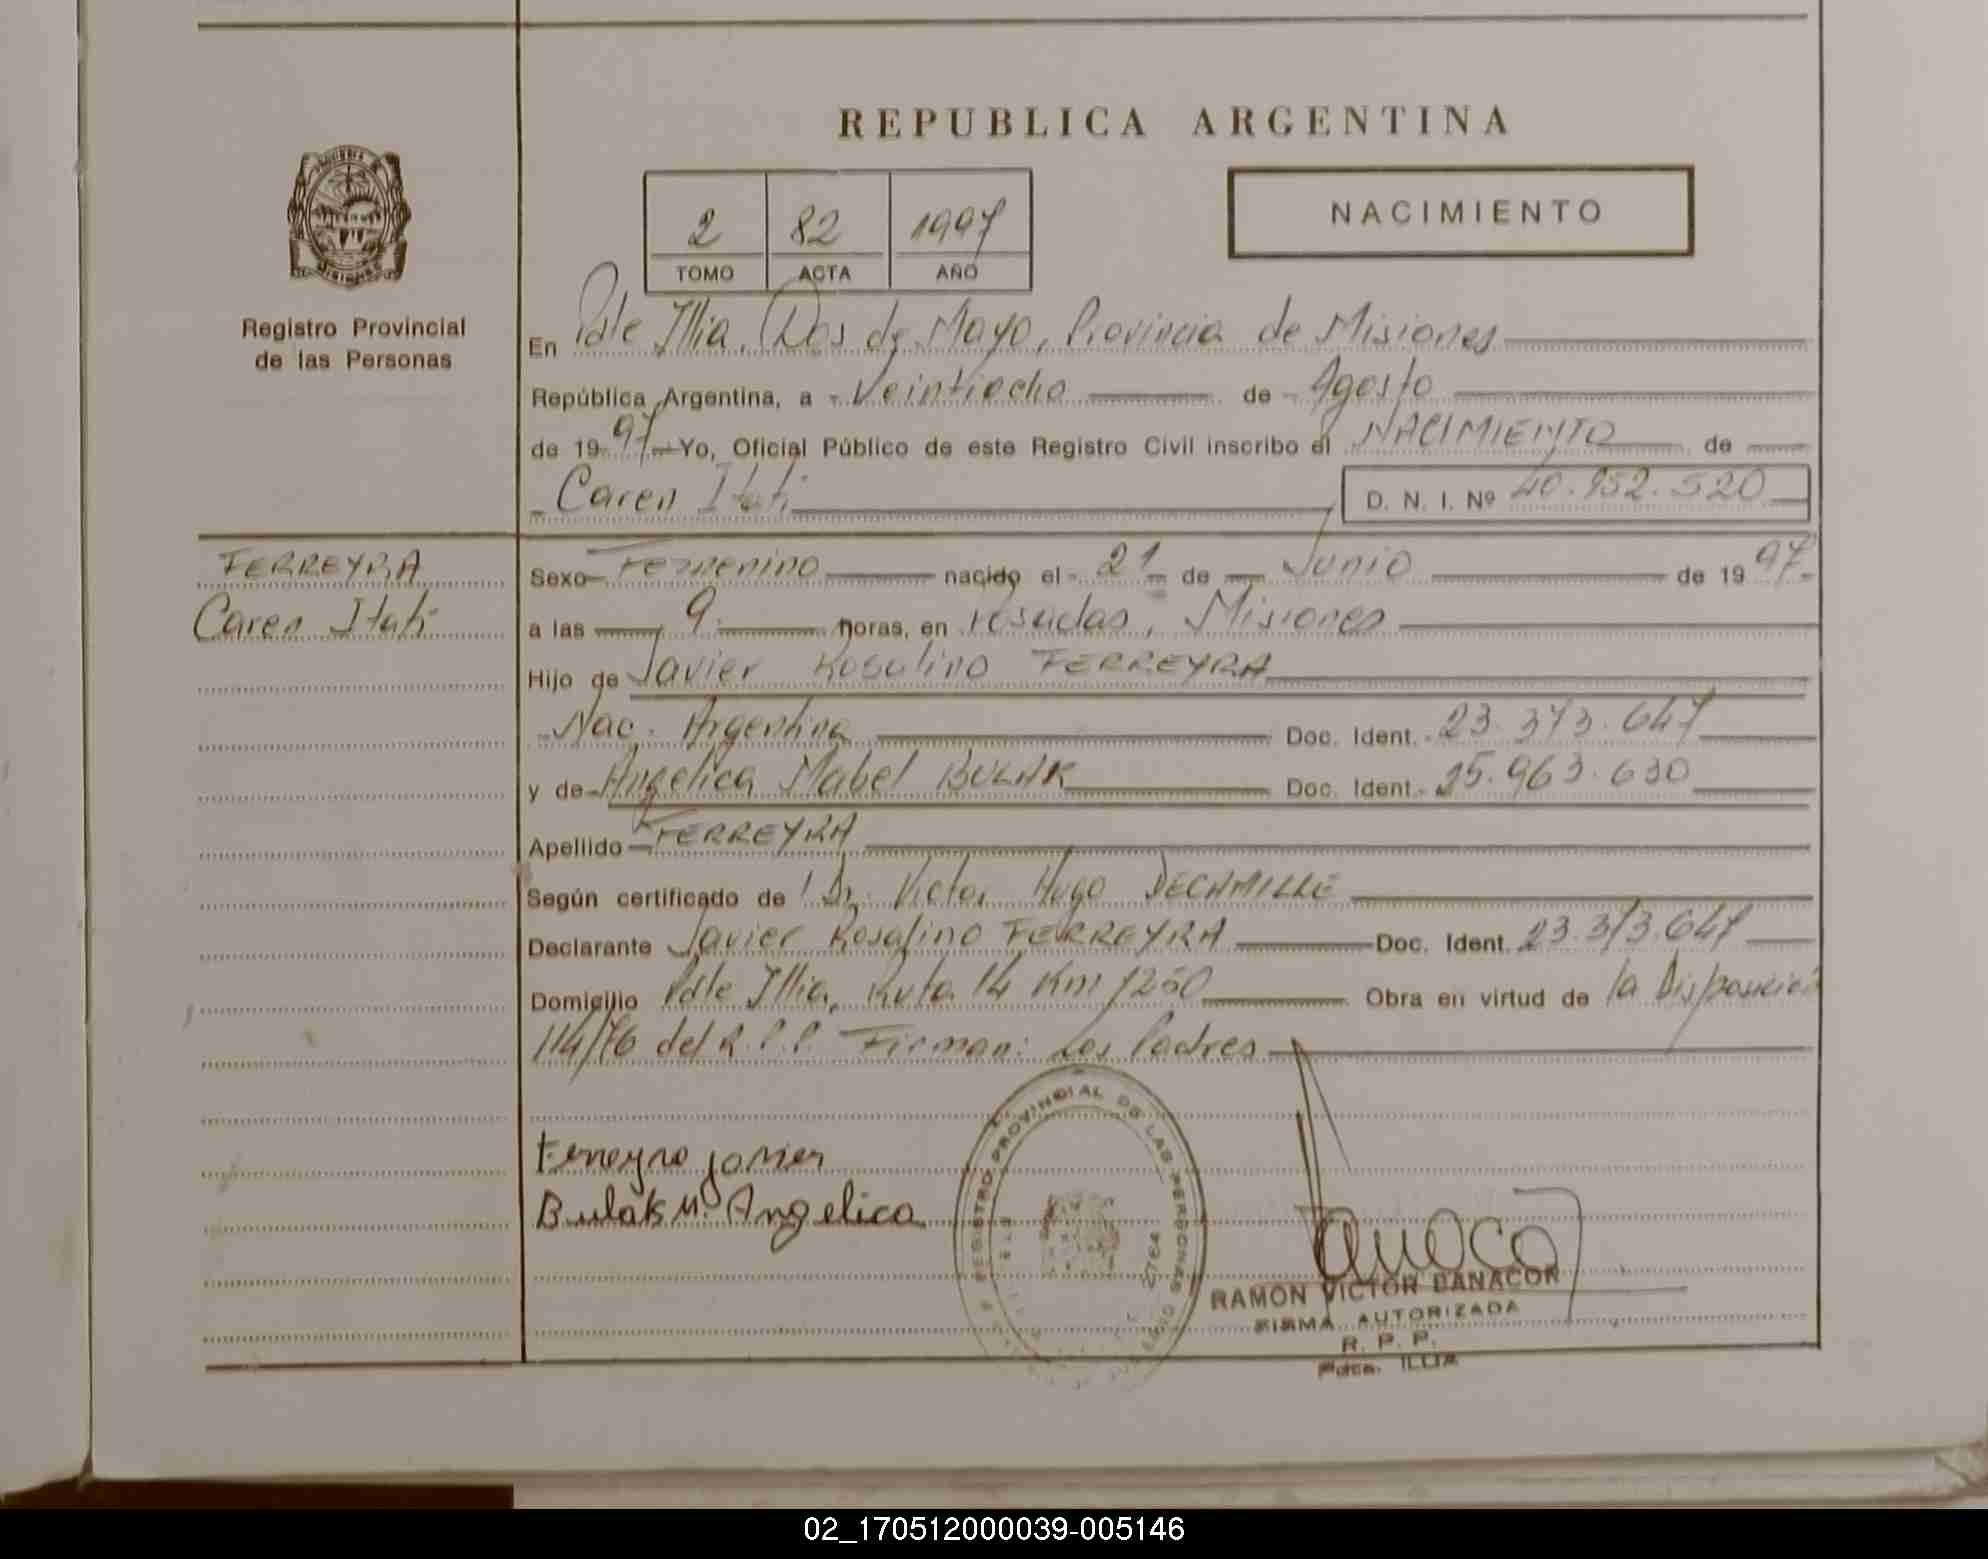 REPUBLICA ARGENTINA
2 82 1997
TOMO ACTA AÑO
NACIMIENTO
MISIONES
Registro Provincial
de las Personas
En Pdte Illia, Dos de Mayo, Provincia de Misiones
República Argentina, a Veintiocho de Agosto
de 1997 Yo, Oficial Público de este Registro Civil inscribo el NACIMIENTO de
Caren Itatí D. N. I. Nº 40.952.520
FERREYRA
Caren Itatí
Sexo Femenino nacido el 21 de Junio de 1997
a las 9 horas, en Posadas, Misiones
Hijo de Javier Rosalino FERREYRA
Nac. Argentina Doc. Ident. 23.373.647
y de Angelica Mabel BULAK Doc. Ident. 25.963.630
Apellido FERREYRA
Según certificado de Dr. Victor Hugo DECAMILLE
Declarante Javier Rosalino FERREYRA Doc. Ident. 23.373.647
Domicilio Pdte Illia, Ruta 14 Km 1250 Obra en virtud de la Disposición
114/76 del R.P.P. Firman: Los Padres
Ferreyra Javier
Bulak M. Angelica
REGISTRO PROVINCIAL DE LAS PERSONAS
RAMON VICTOR DANACOR
FIRMA AUTORIZADA
R. P. P.
Pdte. ILLIA
02_170512000039-005146